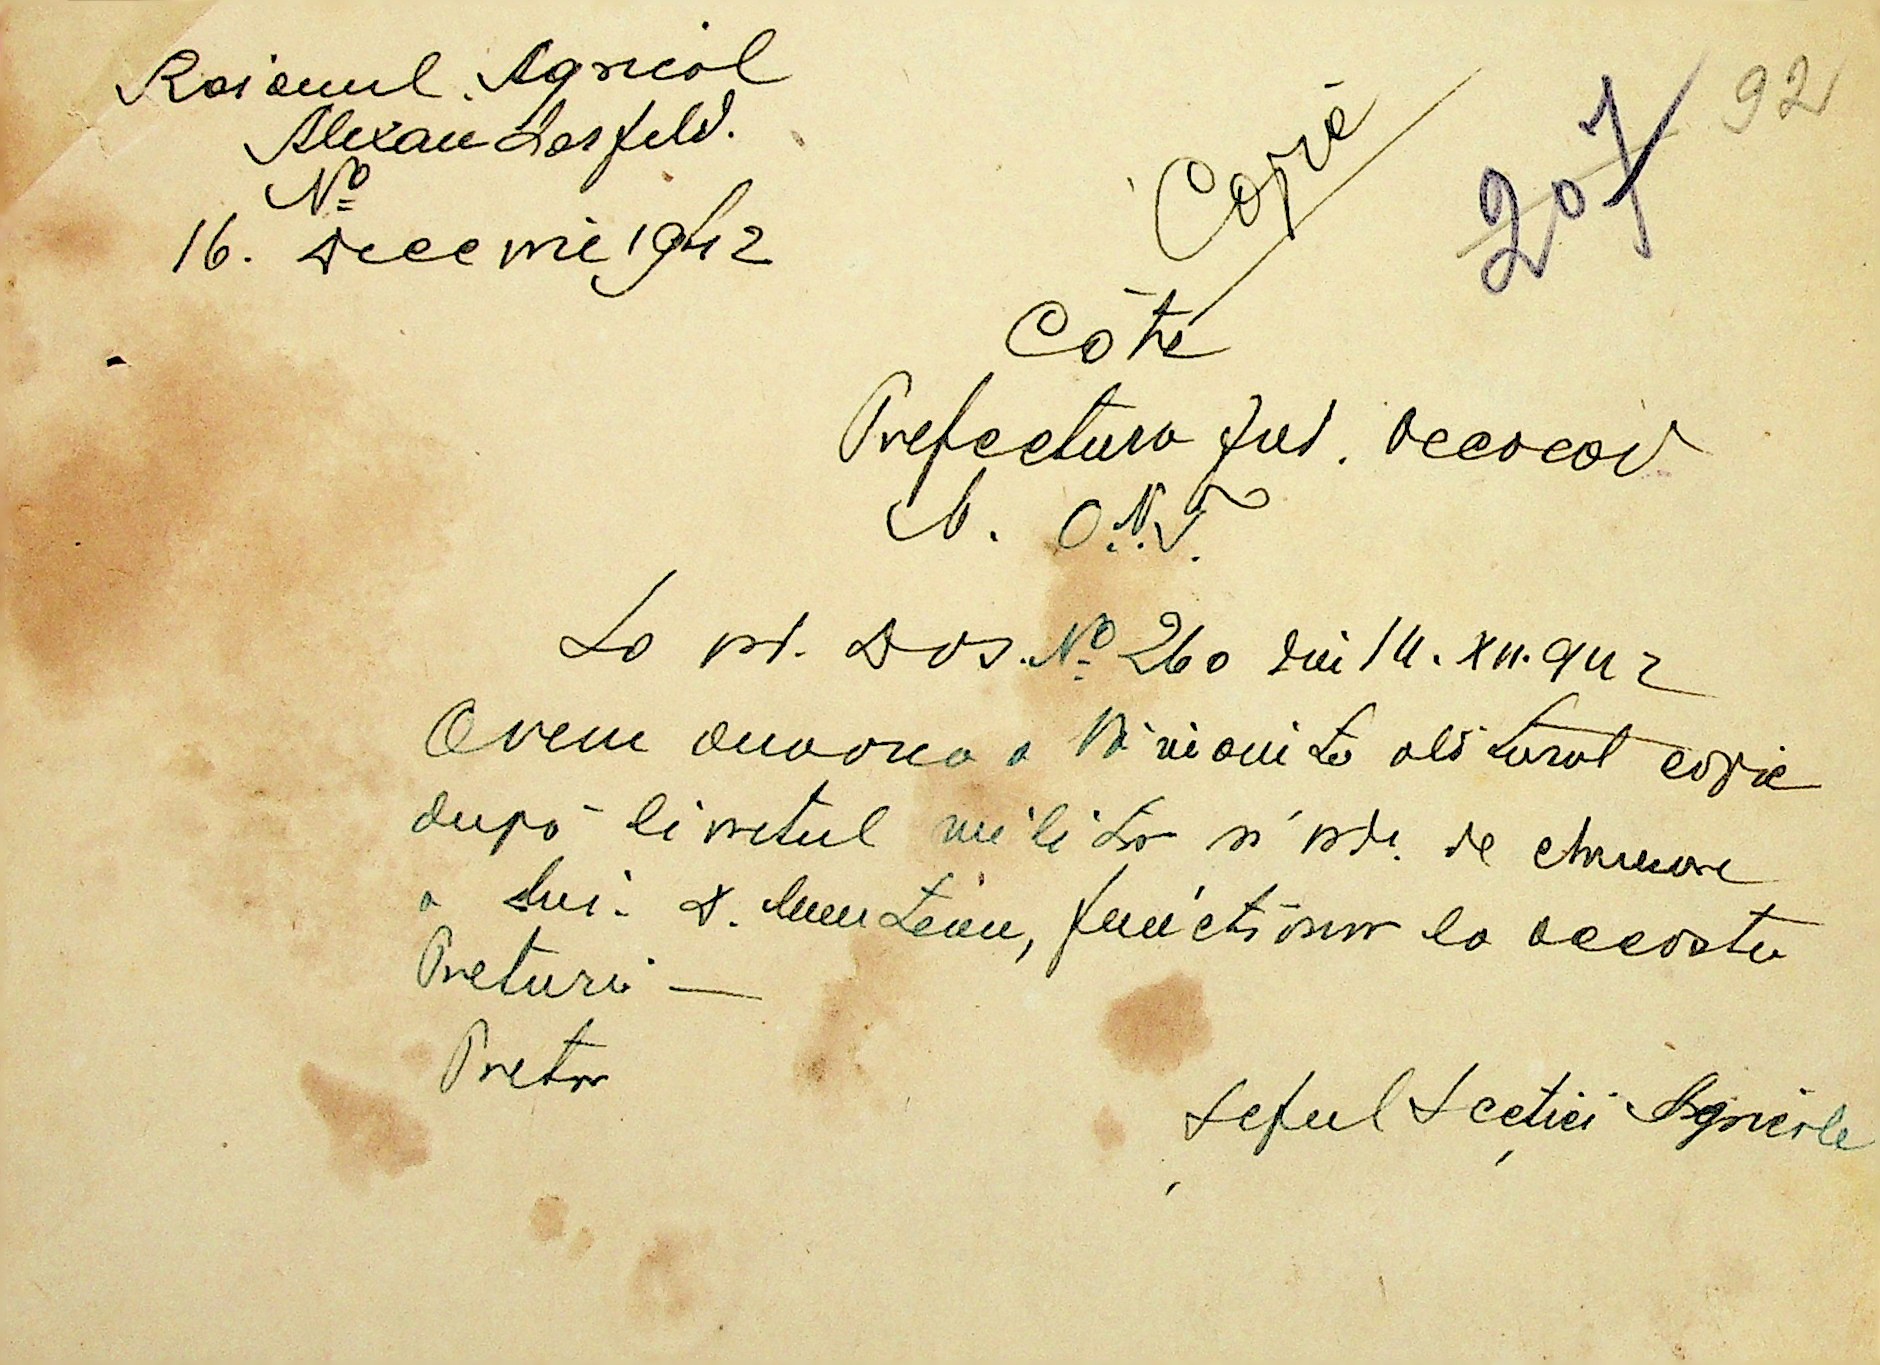 Raionul Agricol
Alexanderfeld.
No
16. Decemvrie 1942
Copie
207
92
Către
Prefectura Jud. Oceacov
B. O.N.T.
La ord. Dvs. No 260 din 14.XII.942
Avem onoarea a Vă înainta alăturat copie
după livretul militar și ord. de chemare
a lui. D. Munteanu, funcționar la aceasta
Pretură —
Pretor
Șeful Secției Agricole